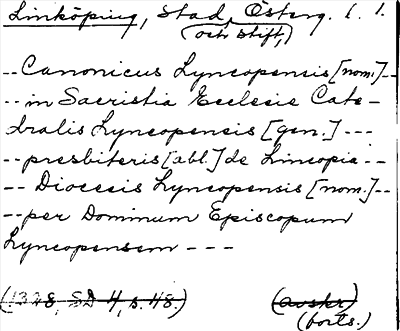 Linköping, Stad, Österg. l. 1.
(och stift,)
-- Canonicus Lyncopensis [nom.] --
-- in Sacristia Ecclesie Cate-
dralis Lyncopensis [gen.] ---
-- presbiteris [abl.] de Lincopia --
-- Diocesis Lyncopensis [nom.] --
-- per Dominum Episcopum
Lyncopensem ---
(1328, SD 4, s. 48.) (avskr)
(forts.)